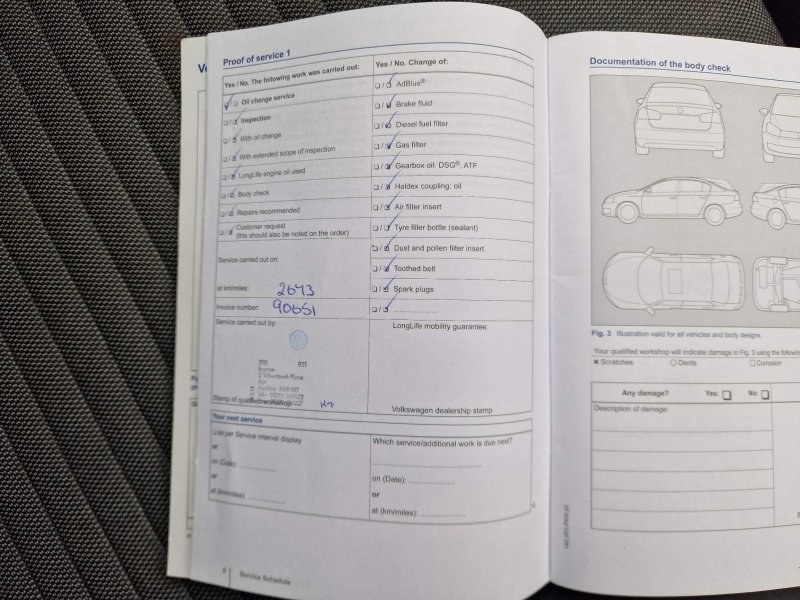 Proof of service 1
Yes / No. The following work was carried out:
Oil change service
Inspection
With oil change
With extended scope of inspection
LongLife engine oil used
Body check
Repairs recommended
Customer request
(this should also be noted on the order)
Service carried out on:
at km/miles: 2643
Invoice number: 90651
Service carried out by:
210 821
Ingram
2 Wheatpark Place
Ayr
Stamp of qualified workshop
Yes / No, Change of:
AdBlue®
Brake fluid
Diesel fuel filter
Gas filter
Gearbox oil: DSG®, ATF
Haldex coupling: oil
Air filter insert
Tyre filler bottle (sealant)
Dust and pollen filter insert
Toothed belt
Spark plugs
....................
LongLife mobility guarantee:
Volkswagen dealership stamp
Your next service
as per Service interval display
or
on (Date): ....................
or
at (km/miles): ....................
Which service/additional work is due next?
....................
on (Date): ....................
or
at (km/miles): ....................
6 Service Schedule
Documentation of the body check
Fig. 3 Illustration valid for all vehicles and body designs
Your qualified workshop will indicate damage in Fig. 3 using the following
Scratches Dents Corrosion
Any damage? Yes: No:
Description of damage: